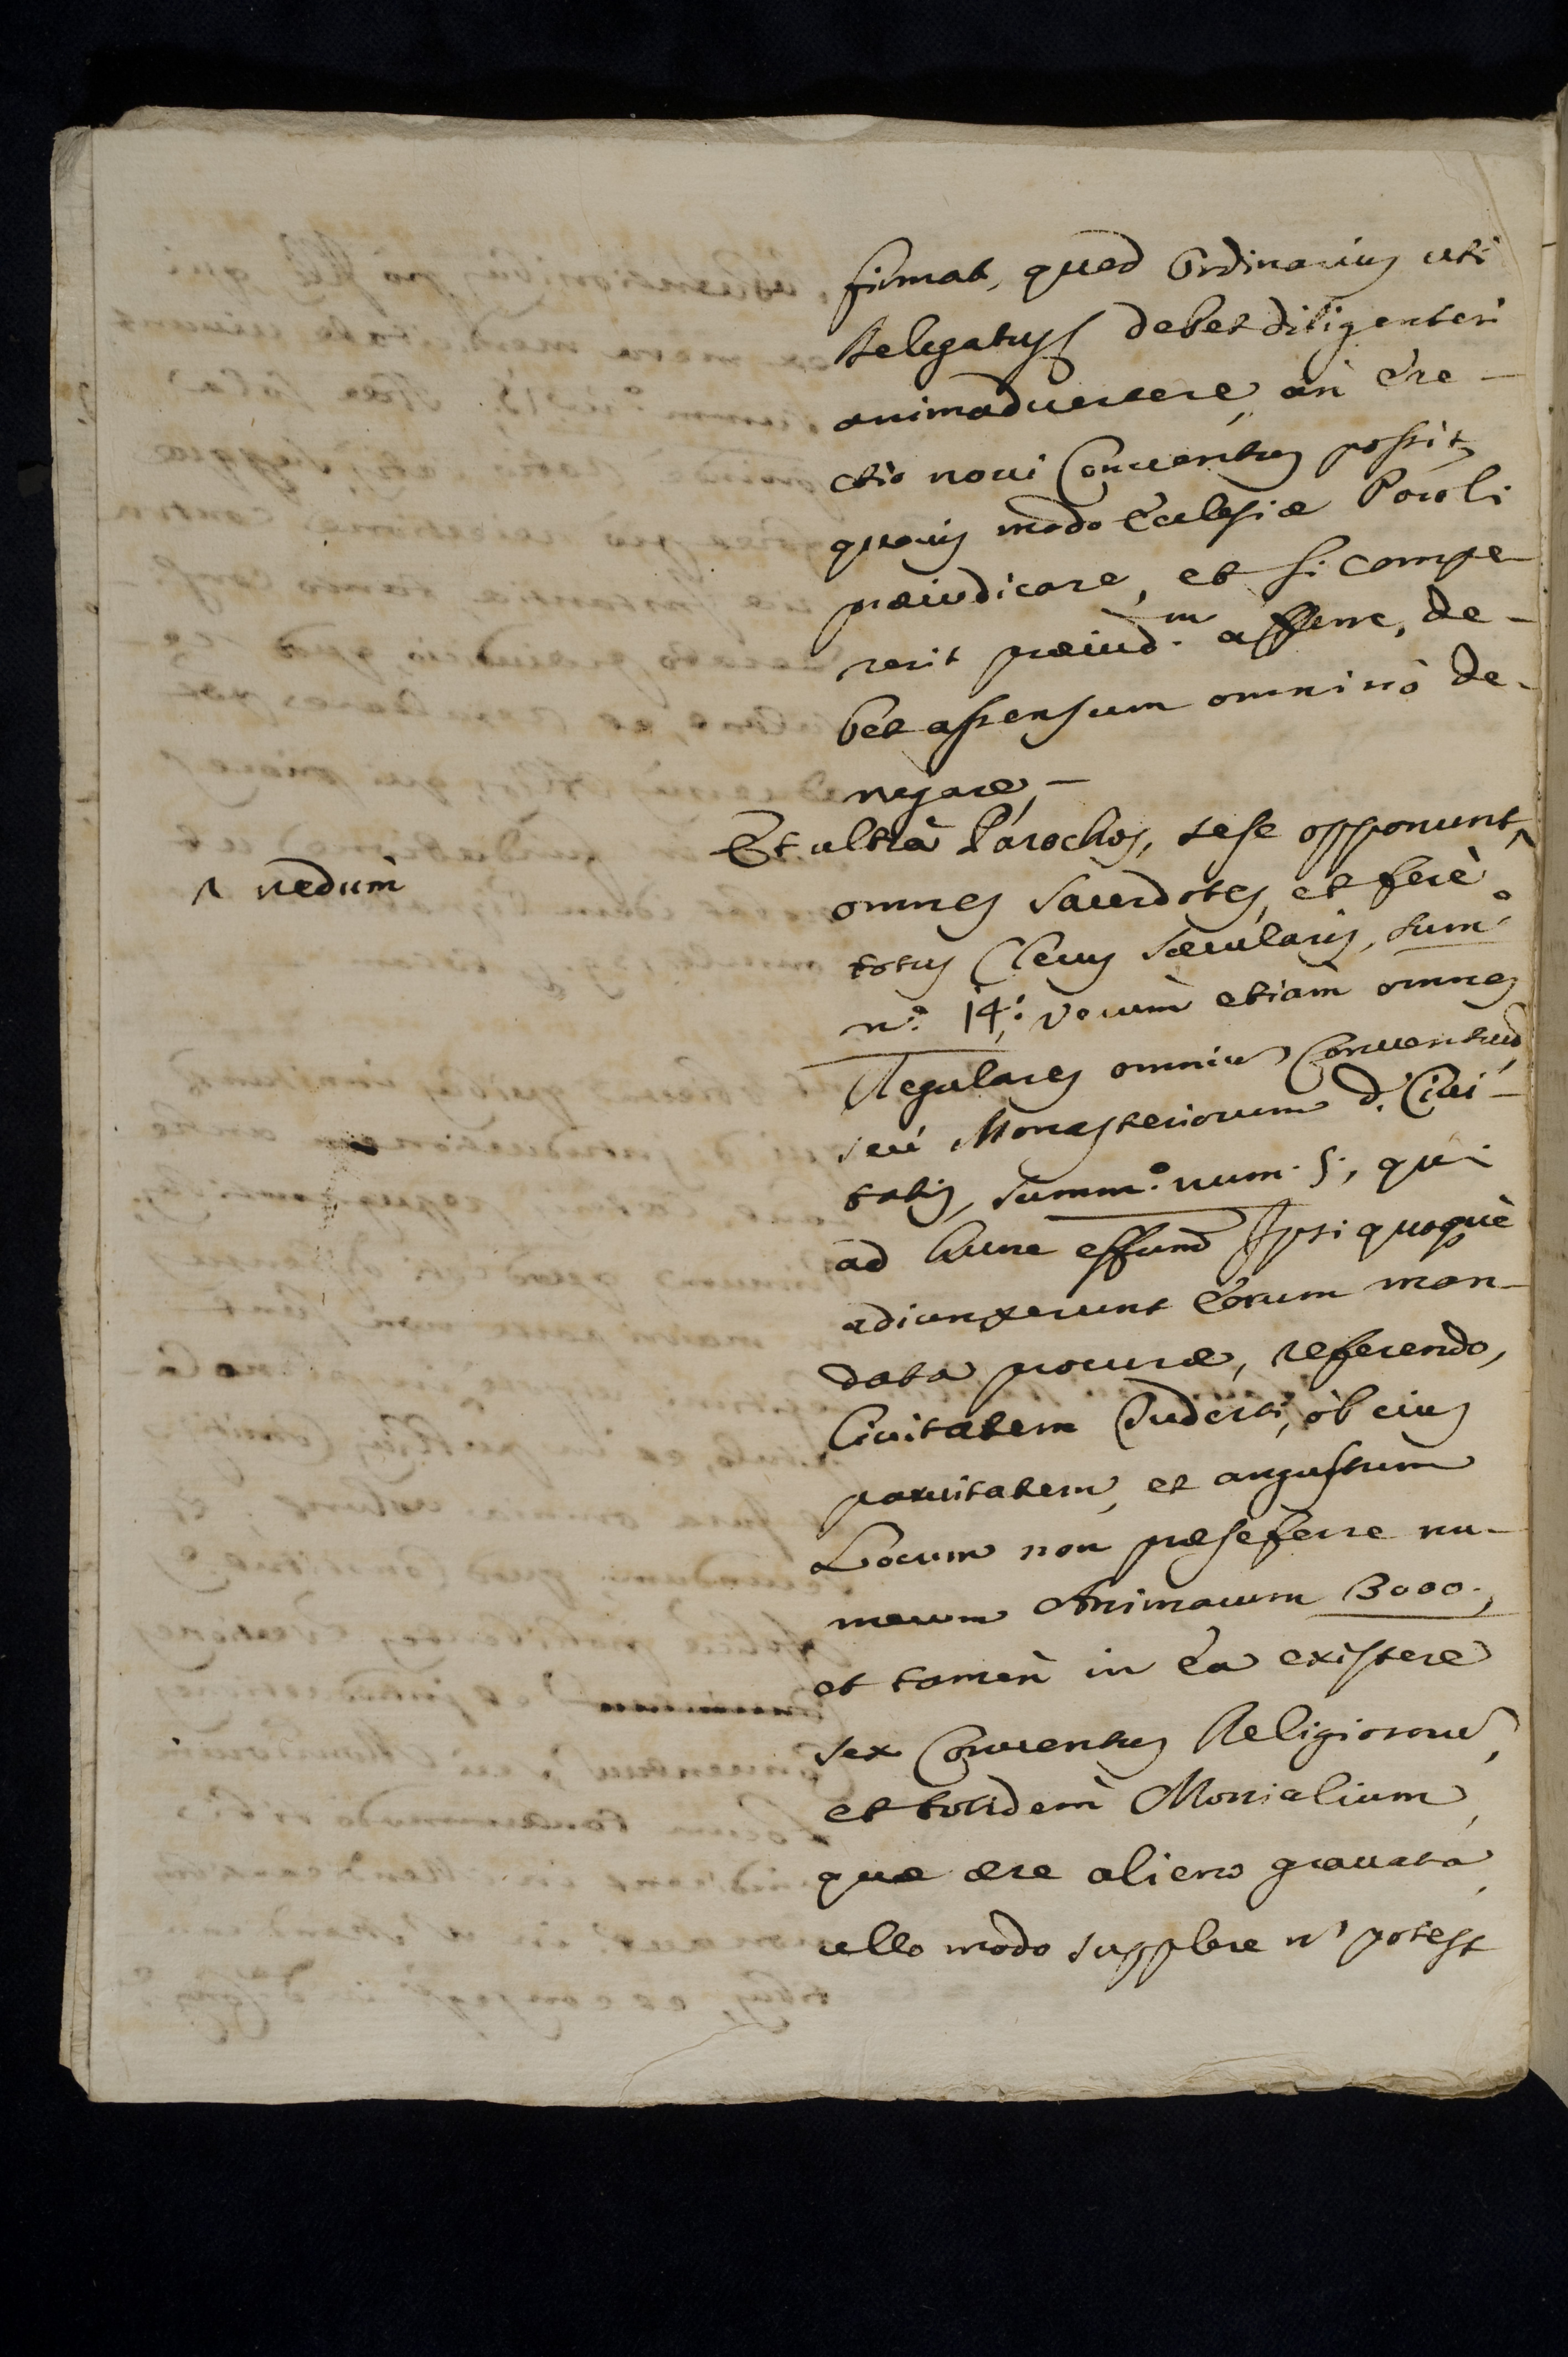 firmat, quod Ordinarius uti
delegatus debet diligenter
animadvertere, an Ere-
ctio novi Conventus possit
quovis modo Ecclesiæ Paroli
præiudicare, et si compe-
rerit præiud.m afferre, de-
bet assensum omninò de-
negare, -
Et ultrà Parochos, sese opponunt,
^ nedum
omnes Sacerdotes, et ferè
totus Clerus Sæcularis, sum.o
n.o 14: verùm etiàm omnes
Regulares omniũ Conventuũ,
seù Monasteriorum d. Civi-
tatis, summ.o num. 5, qui
ad hunc effum Ipsi quoquè
adiunxerunt Eorum man-
data procuræ, referendo,
Civitatem Tuderti, ob eius
parvitatem, et angustum
Locum non præseferre nu-
merum Animarum 3000.,
et tamen in Ea existere
sex Conventus Religiosorũ,
et totidem Monialium,
quæ ære alieno gravata,
ullo modo supplere ñ potest